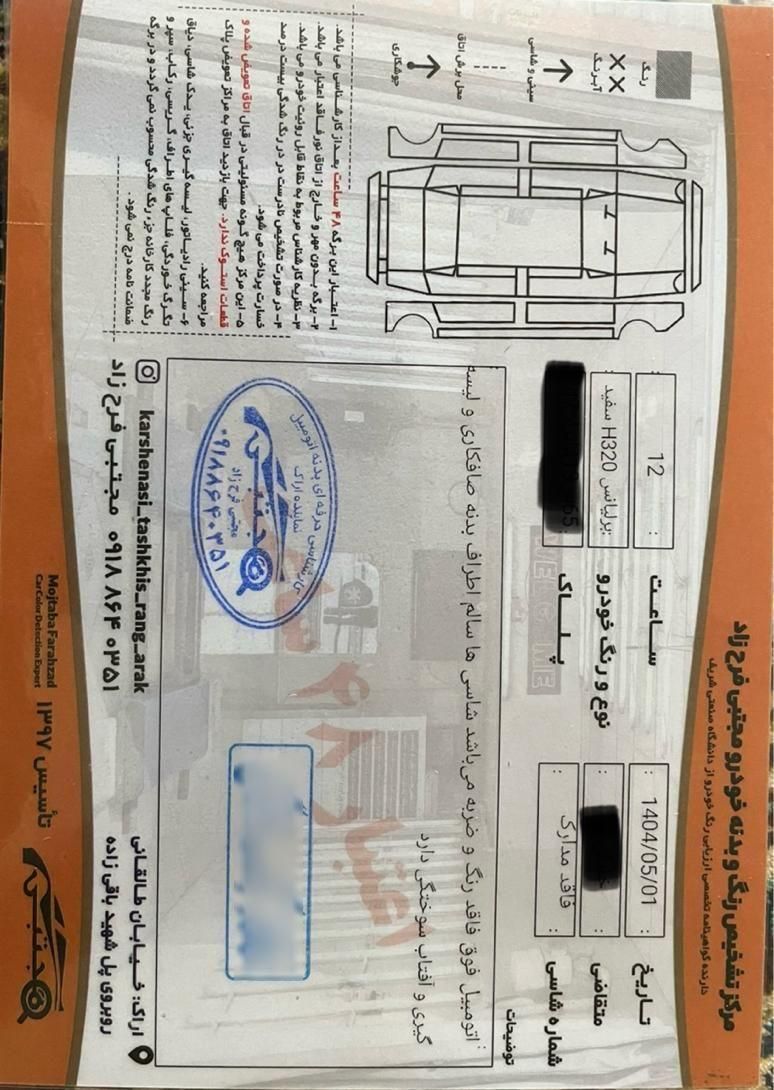 مرکز تشخیص رنگ و بدنه خودرو مجتبی فرح زاد
دارنده گواهینامه تخصصی ارزیابی رنگ خودرو از دانشگاه صنعتی شریف
تاریخ : 1404/05/01 :
ساعت : 12 :
متقاضی :
نوع و رنگ خودرو :برلیانس H320 سفید :
شماره شاسی : فاقد مدارک :
پلاک 65
توضیحات
:اتومبیل فوق فاقد رنگ و ضربه می‌باشد شاسی ها سالم اطراف بدنه صافکاری و لیسه
گیری و آفتاب سوختگی دارد
اعتبار ۴۸ ساعت
کارشناسی حرفه ای بدنه اتومبیل
نماینده اراک
مجتبی
مجتبی فرح زاد
۰۹۱۸۸۶۴۰۳۵۱
رنگ
آبرنگ
سینی و شاسی
محل برش اتاق
جوشکاری
۱- اعتبار این برگه ۴۸ ساعت بعد از کارشناسی می باشد.
۲- برگه بدون مهر و خارج از اتاق نور فاقد اعتبار می باشد.
۳- نظریه کارشناس مربوط به نقاط قابل رویت خودرو می باشد.
۴- در صورت تشخیص نادرست در رنگ شدگی بیست درصد
خسارت پرداخت می شود.
۵- این مرکز هیچ گونه مسئولیتی در قبال اتاق تعویض شده و
قطعات استوک ندارد. جهت بازدید اتاق به مراکز تعویض پلاک
مراجعه کنید.
۶- سینی رادیاتور، لیسه گیری جزئی، یدک شاسی، دیاق
تگرگ خوردگی، فلاپ های اطراف، گریسی، رکاب، سپر و
رنگ مجدد کارخانه جزء رنگ شدگی محسوب نمی گردد و در برگه
ضمانت نامه درج نمی شود.
karshenasi_tashkhis_rang_arak
مجتبی فرح زاد ۰۹۱۸ ۸۶۴ ۰۳۵۱
اراک: خیابان طالقانی
روبروی پل شهید باقی زاده
Mojtaba Farahzad
Car Color Detection Expert
تأسیس ۱۳۹۷
مجتبی